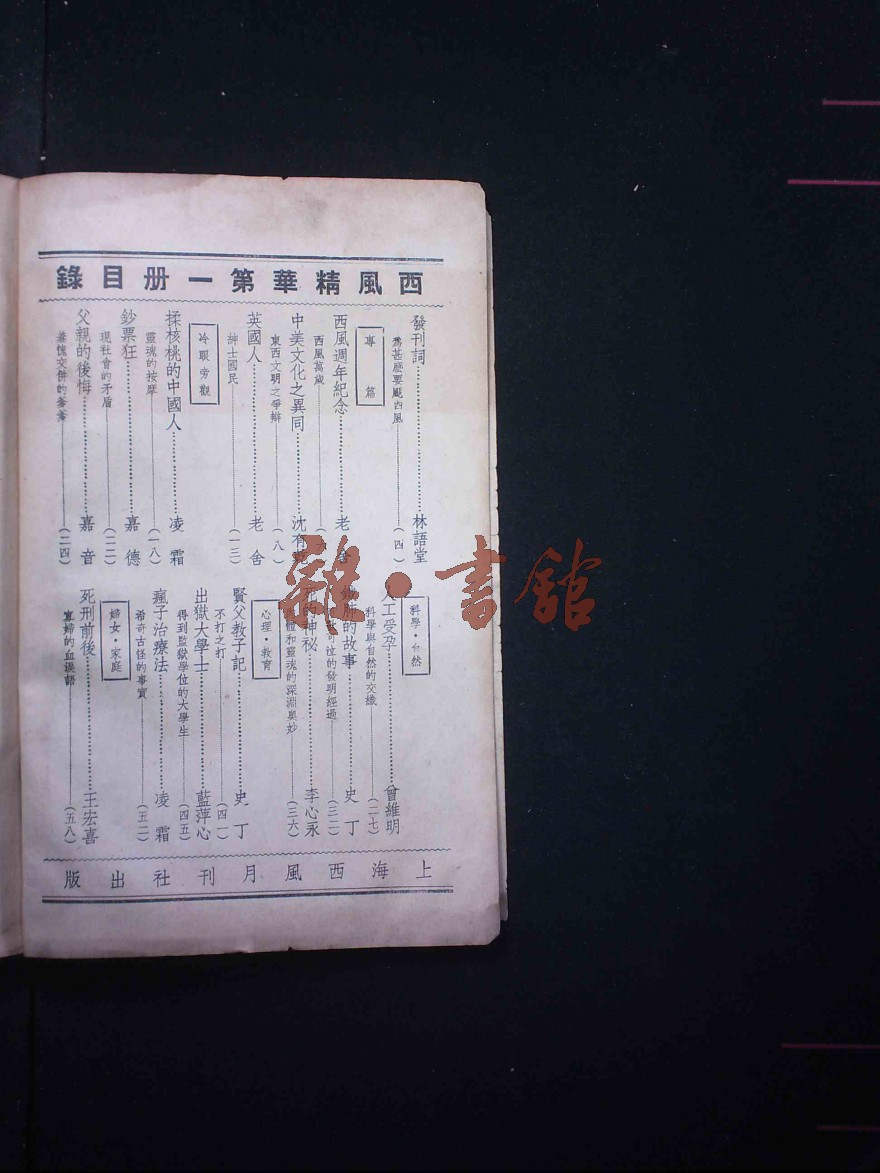 西風精華第一册目錄
發刊詞……林語堂
爲甚麽要颳西風……(四)
專篇
西風週年紀念……老舍
西風萬歲
中美文化之異同……沈有
東西文明之爭辯……(八)
英國人……老舍
紳士國民……(一三)
冷眼旁觀
揉核桃的中國人……凌霜
靈魂的按摩……(一八)
鈔票狂……嘉德
現社會的矛盾……(二二)
父親的後悔……嘉音
羞愧交併的爹爹……(二四)
科學·自然
人工受孕……曾維明
科學與自然的交織……(二七)
肺的故事……史丁
泣的發明經過……(三二)
的神秘……李心永
和靈魂的深淵奥妙……(三六)
心理·教育
賢父教子記……史丁
不打之打……(四一)
出獄大學士……藍萍心
得到監獄學位的大學生……(四五)
瘋子治療法……凌霜
希奇古怪的事實……(五二)
婦女·家庭
死刑前後……王宏喜
寡婦的血淚語……(五八)
上海西風月刊社出版
雜·書舘